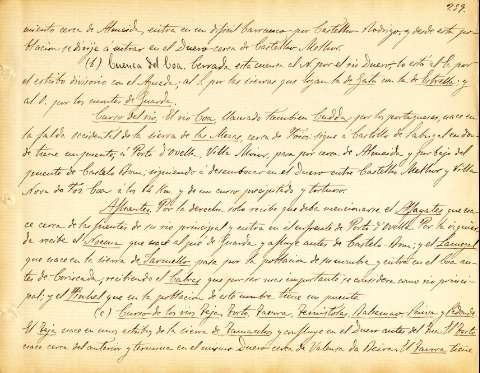 259.
miento cerca de Almeida, entra en un difícil barranco por Castello Rodrigo, y desde esta po-
blación se dirije a entrar en el Duero cerca de Castello Melhor.
(b) Cuenca del Coa. Cerrada esta cuenca al N. por el río Duero, lo está al E. por
el estribo divisorio con el Agueda, al S. por las sierras que ligan la de Gata con la de Estrella; y
al O. por los montes de Guarda.
Curso del río. El río Coa, llamado tambien Cudda por los portugueses, nace en
la falda occidental de la sierra de las Mesas, cerca de Foios, sigue a Castello de Sabugal en don-
de tiene un puente, a Porto d'Ovella, Villa Mior, pasa por cerca de Almeida y por bajo del
puente de Castelo Bom, siguiendo a desembocar en el Duero entre Castello Melhor y Villa
Nova de Foz Coa a los Km y de un curso precipitado y tortuoso.
Afluentes. Por la derecha solo recibe que deba mencionarse el que na-
ce cerca de las fuentes de su río principal y entra en el en frente de Porto d'Ovella. Por la izquier-
da recibe el Noeme que nace al pie de Guarda y afluye antes de Castelo Bom; y el Lamegal
que nace en la sierra de Jarmello, pasa por la población de su nombre y entra en el Coa an-
tes de Cariscada, recibiendo el Cabras que por ser mas importante se considera como río princi-
pal; y el Pinhel que en la población de este nombre tiene un puente.
(c) Curso de los ríos Teja, Torto, Tavora,
El Teja nace en un estribo de la sierra de y confluye en el Duero antes del El Torto
nace cerca del anterior y termina en el mismo Duero cerca de Valenza da Beira. El Tavora tiene